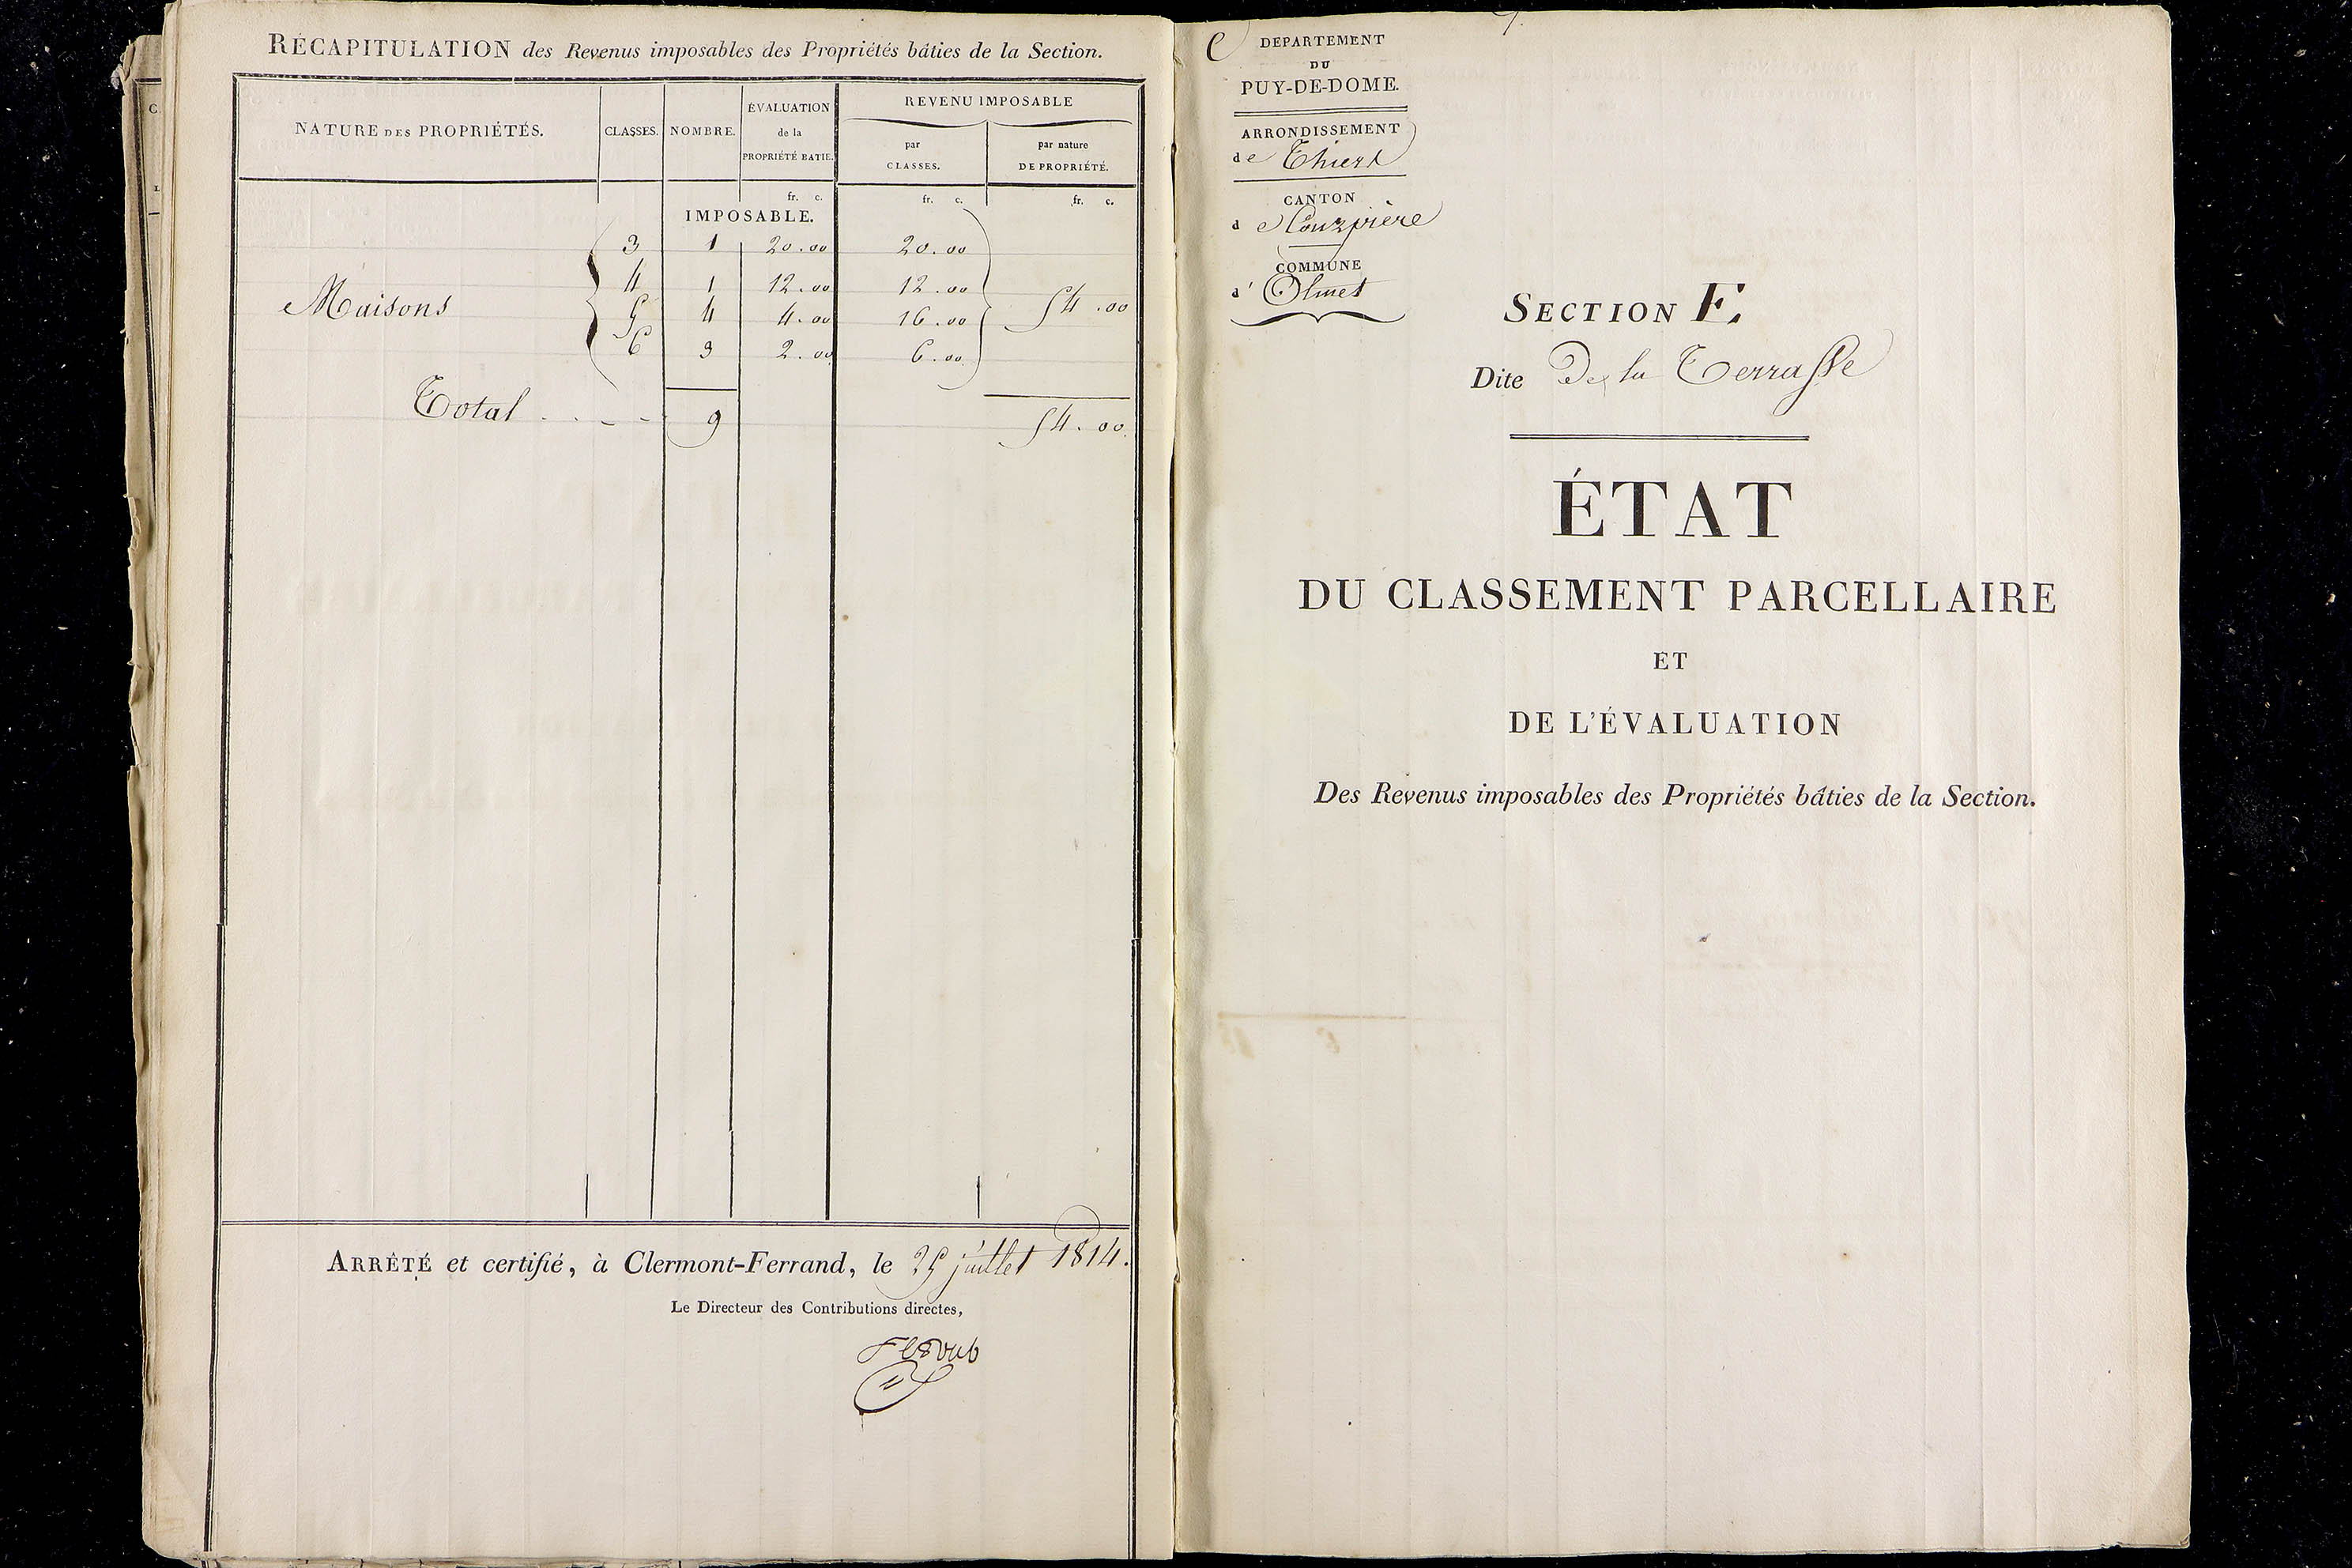 RÉCAPITULATION des Revenus imposables des Propriétés bâties de la Section.
NATURE DES PROPRIÉTÉS. CLASSES. NOMBRE. ÉVALUATION de la PROPRIÉTÉ BATIE. REVENU IMPOSABLE
par CLASSES. par nature DE PROPRIÉTÉ.
fr. c. fr. c. fr. c.
IMPOSABLE.
3 1 20.00 20.00
4 1 12.00 12.00
Maisons 5 4 4.00 16.00 54.00
6 3 2.00 6.00
Total 9 54.00
ARRÊTÉ et certifié, à Clermont-Ferrand, le 25 juillet 1814.
Le Directeur des Contributions directes,
DEPARTEMENT
DU
PUY-DE-DOME.
ARRONDISSEMENT
de Thiers
CANTON
de Courpière
COMMUNE
d'Olmet
SECTION E.
Dite De la Terrasse
ÉTAT
DU CLASSEMENT PARCELLAIRE
ET
DE L'ÉVALUATION
Des Revenus imposables des Propriétés bâties de la Section.